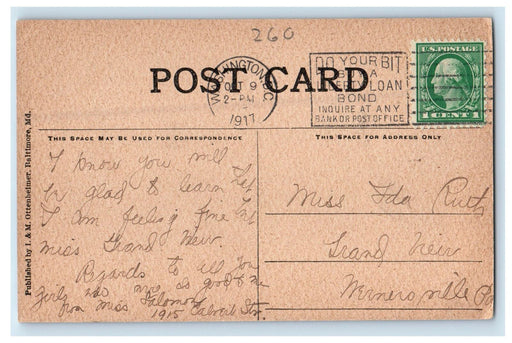 260
POST CARD
WASHINGTON, D.C.
OCT 9
2-PM
1917
DO YOUR BIT
BUY A
LIBERTY LOAN
BOND
INQUIRE AT ANY
BANK OR POST OFFICE
U.S. POSTAGE
1 CENT 1
THIS SPACE MAY BE USED FOR CORRESPONDENCE
THIS SPACE FOR ADDRESS ONLY
Published by I. & M. Ottenheimer, Baltimore, Md.
I know you will
be glad to learn that
I am feeling fine
miss Grand View.
Regards to all you
girls was so good to me
from Miss
1915 Calvert St.
Miss Ida Ruth
Grand View
Minersville Pa